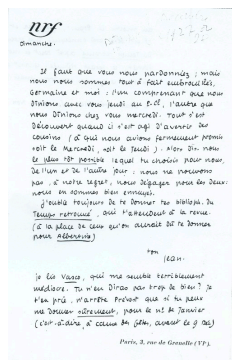 nrf
dimanche.
Il faut que vous nous pardonniez ; mais
nous nous sommes tout à fait embrouillés,
Germaine et moi : l'un comprenant que nous
dînions avec vous jeudi au l'autre que
nous dînions chez vous mercredi. Tout s'est
découvert quand il s'est agi d'avertir des
cousins (à qui nous avions fermement promis
soit le Mercredi, soit le Jeudi). Alors dis-nous
le plus tôt possible lequel tu choisis pour nous,
de l'un et de l'autre jour : nous ne pouvons
pas, à notre regret, nous dégager pour les deux :
nous en sommes bien ennuyés.
J'oublie toujours de te donner tes
Temps retrouvé, qui t'attendent à la revue.
(à la place de ceux qu'on aurait dû te donner
pour Albertine)
ton
Jean.
je lis Vasco, qui me semble terriblement
médiocre. Tu n'en diras pas trop de bien ? Je
t'en prie, n'arrête Prévost que si tu peux
me donner sûrement, pour le nº de Janvier
(c'est-à-dire, à cause des fêtes, avant le 9 déc)
Paris, 3, rue de Grenelle (VIe).